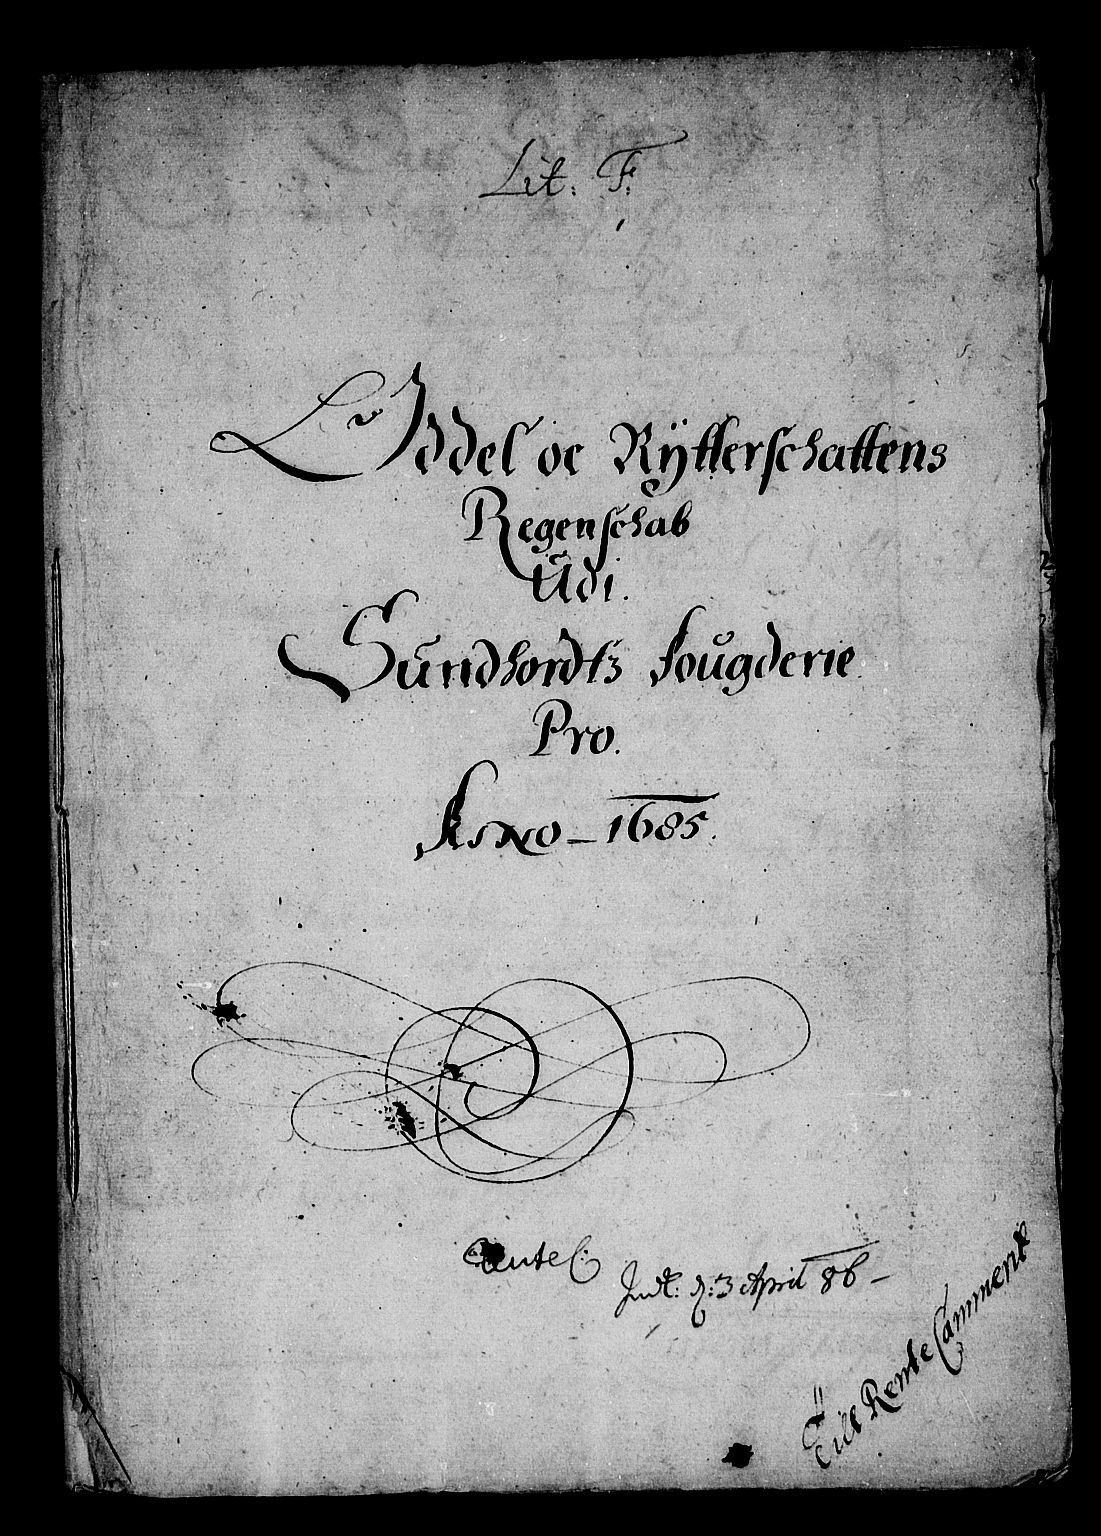 Lit: F.
Iddel oc Rÿtterschattens
Regenschab
Udi.
Sundhordtz fougderie
Pro.
Anno – 1685.
Indl: d: 3 April 86 –
Till Rente Cammeret